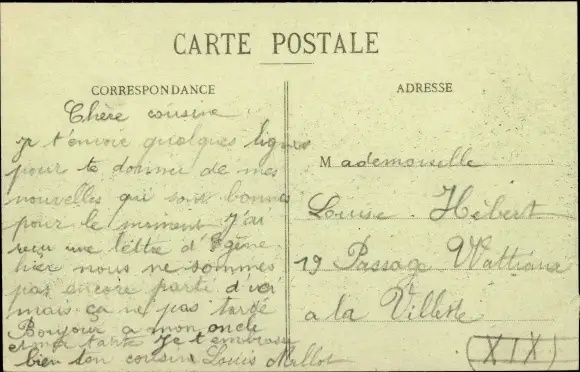 CARTE POSTALE
CORRESPONDANCE
ADRESSE
Chère cousine
je t'envoie quelques lignes
pour te donner de mes
nouvelles qui sont bonnes
pour le moment J'ai
reçu une lettre d'Egène
hier nous ne sommes
pas encore parti d'ici
mais ça ne pas tardé
Bonjour a mon oncle
et ma tante Je t'embrasse
bien ton cousin Louis Mallot
Mademoiselle
Louise Hébert
19 Passage Wattiaux
a la Villette
(XIX)